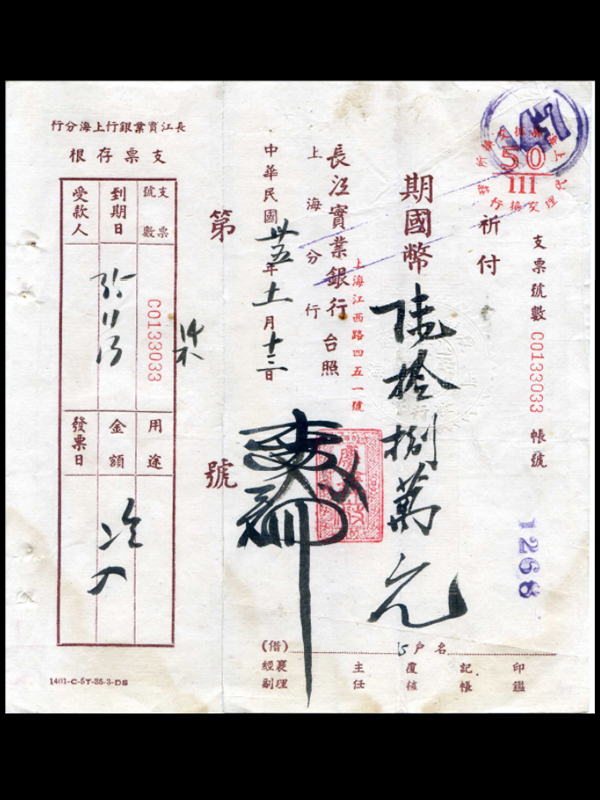 支票號數 C0133033 帳號
1268
祈付
期國幣 陸拾捌萬元
上海江西路四五一號
長江實業銀行台照
上海分行
中華民國卅五年十一月十三日
第 號
長江實業銀行上海分行
支票存根
支票號數 C0133033
到期日
受款人
35/11/13
用途
金額
發票日
47
50
111
戶名
(借)
經副襄理
主任
覆核
記帳
印鑑
1401-C-5T-35-3-DS